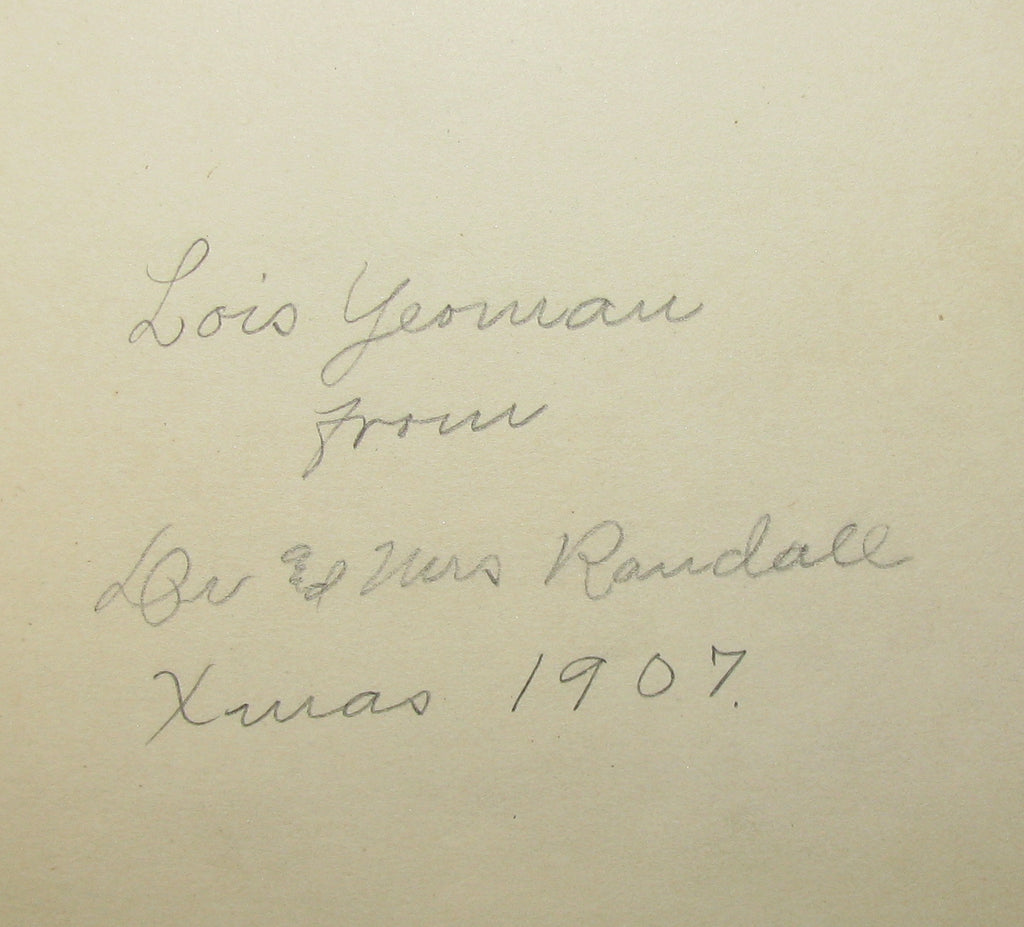 Lois Yeoman
from
Dr & Mrs Randall
Xmas 1907.